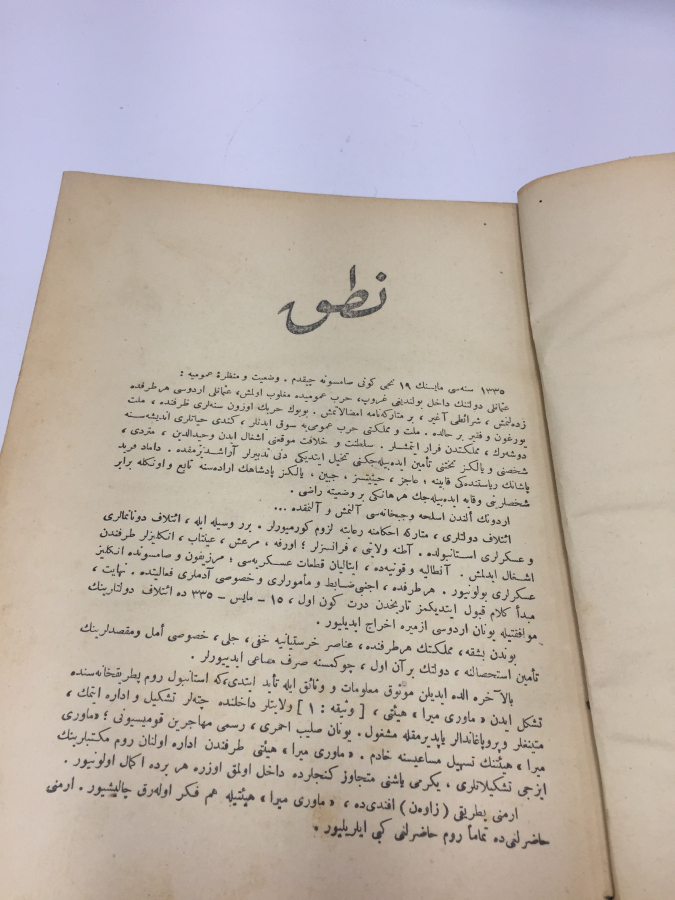 نطق
١٣٣٥ سنه‌سی مایسنك ١٩ نجی كونی صامسونه چیقدم . وضعیت و منظرهٔ عمومیه :
عثمانلی دولتنك داخل بولندیغی غروپ، حرب عمومیده مغلوب اولمش، عثمانلی اردوسی هر طرفده
زده‌لنمش ، شرائطی آغیر ، بر متاركه‌نامه امضالانمش . بویوك حربك اوزون سنه‌لری ظرفنده ، ملت
یورغون و فقیر بر حالده . ملت و مملكتی حرب عمومی‌یه سوق ایدنلر ، كندی حیاتلری اندیشه‌سنه
دوشه‌رك ، مملكتدن فرار ایتمشلر . سلطنت و خلافت موقعنی اشغال ایدن وحیدالدین ، متردی ،
شخصنی و یالكز تختنی تأمین ایده‌بیله‌جكنی تخیل ایتدیكی دنی تدبیرلر آراشدیرمقده . داماد فرید
پاشانك ریاستنده‌كی قابینه ؛ عاجز ، حیثیتسز ، جبین ، یالكز پادشاهك اراده‌سنه تابع و اونكله برابر
شخصلرینی وقایه ایده‌بیله‌جك هر هانكی بر وضعیته راضی .
اردونك الندن اسلحه و جبخانه‌سی آلنمش و آلنمقده ...
ائتلاف دولتلری ، متاركه احكامنه رعایته لزوم كورمیورلر . برر وسیله ایله ، ائتلاف دونانمالری
و عسكرلری استانبولده . آطنه ولایتی ، فرانسزلر ؛ اورفه ، مرعش ، عینتاب ، انكلیزلر طرفندن
اشغال ایدلمش . آنطالیه و قونیه‌ده ، ایتالیان قطعات عسكریه‌سی ؛ مرزیفون و صامسونده انكلیز
عسكرلری بولونیور . هر طرفده ، اجنبی ضابط و مأمورلری و خصوصی آدملری فعالیتده . نهایت ،
مبدأ كلام قبول ایتدیكمز تاریخدن درت كون اول ، ١٥ – مایس – ٣٣٥ ده ائتلاف دولتلرینك
موافقتیله یونان اردوسی ازمیره اخراج ایدیلیور .
بوندن بشقه ، مملكتك هر طرفنده ، عناصر خرستیانیه خفی ، جلی ، خصوصی امل و مقصدلرینك
تأمین استحصالنه ، دولتك بر آن اول ، چوكمسنه صرف مساعی ایدییورلر .
بالآخره الده ایدیلن موثوق معلومات و وثائق ایله تأید ایتدی‌كه استانبول روم پطریقخانه‌سنده
تشكل ایدن « ماوری میرا » هیئتی ، [ وثیقه : ١ ] ولایتلر داخلنده چته‌لر تشكیل و اداره ایتمك ،
متینغلر و پروپاغاندالر یاپدیرمقله مشغول . یونان صلیب احمری ، رسمی مهاجرین قومیسیونی ؛ «ماوری
میرا » هیئتنك تسهیل مساعیسنه خادم . « ماوری میرا » هیئتی طرفندن اداره اولنان روم مكتبلرینك
ایزجی تشكیلاتلری ، یكرمی یاشنی متجاوز كنجلرده داخل اولمق اوزره هر یرده اكمال اولونیور .
ارمنی پطریقی ( زاوه‌ن ) افندی‌ده ، « ماوری میرا » هیئتیله هم فكر اوله‌رق چالیشیور . ارمنی
حاضرلغی‌ده تماماً روم حاضرلغی كبی ایلریلیور .